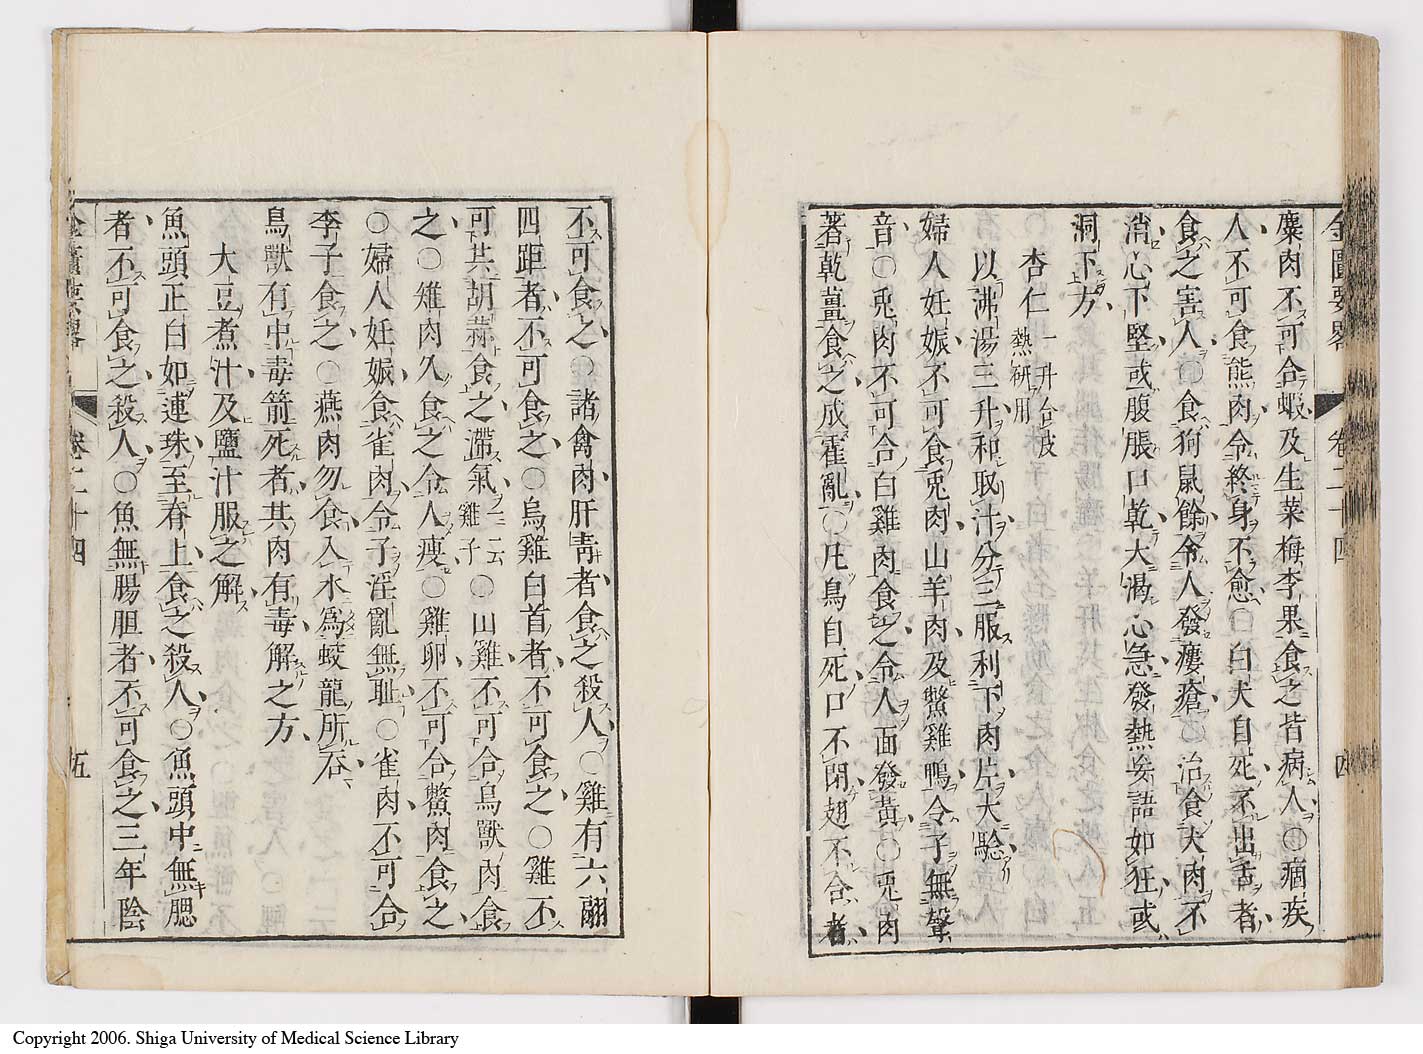 金匱要畧 卷二十四 四
麋肉不可合蝦及生菜梅李果食之皆病人○痼疾
人不可食熊肉令終身不愈○白犬自死不出舌者
食之害人○食狗鼠餘令人發瘻瘡○治食犬肉不
消心下堅或腹脹口乾大渴心急發熱妄語如狂或
洞下方
杏仁一升合皮熟研用
以沸湯三升和取汁分三服利下肉片大驗
婦人妊娠不可食兎肉山羊肉及鱉雞鴨令子無聲
音○兎肉不可合白雞肉食之令人面發黃○兎肉
著乾薑食之成霍亂○凡鳥自死口不閉翅不合者
不可食之○諸禽肉肝青者食之殺人○雞有六翮
四距者不可食之○烏雞白首者不可食之○雞不
可共葫蒜食之滯氣一云雞子○山雞不可合鳥獸肉食
之○雉肉久食之令人瘦○雞卵不可合鱉肉食之
○婦人妊娠食雀肉令子淫亂無恥○雀肉不可合
李子食之○燕肉勿食入水爲蛟龍所吞
鳥獸有中毒箭死者其肉有毒解之方
大豆煮汁及鹽汁服之解
魚頭正白如連珠至脊上食之殺人○魚頭中無腮
者不可食之殺人○魚無腸胆者不可食之三年陰
金匱要畧 卷二十四 五
Copyright 2006. Shiga University of Medical Science Library